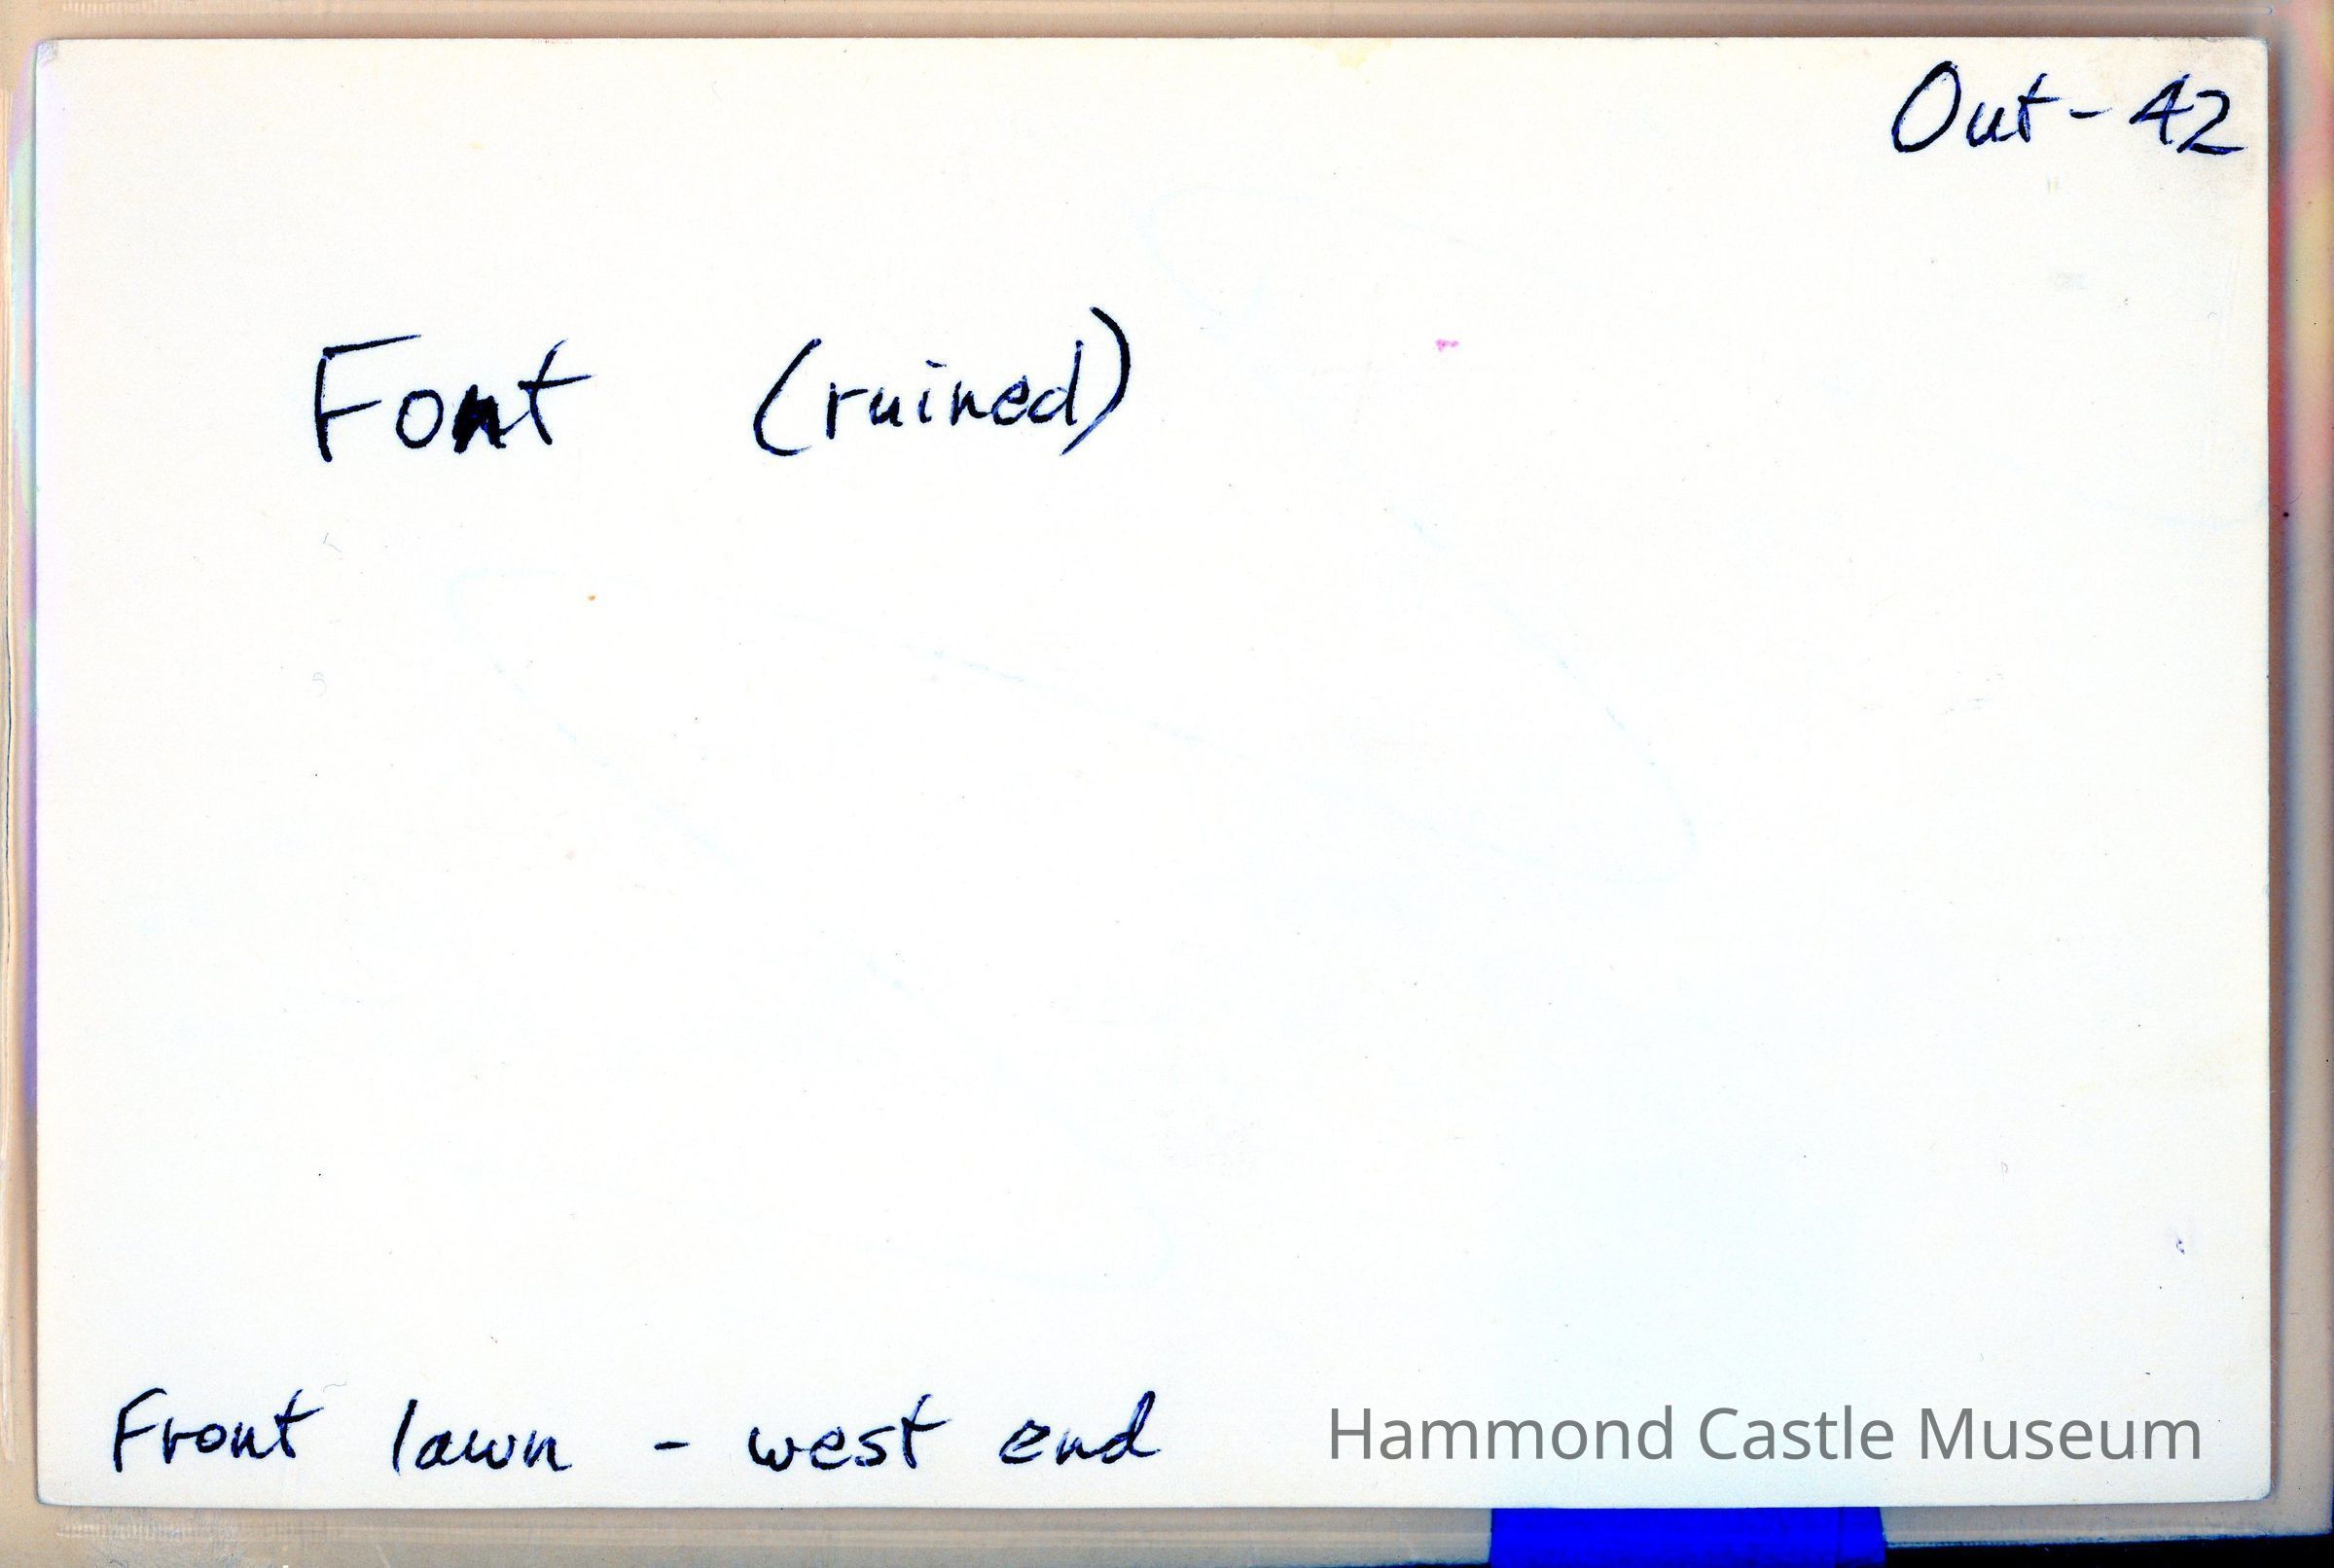 Out - 42
Font (ruined)
Front lawn - west end
Hammond Castle Museum